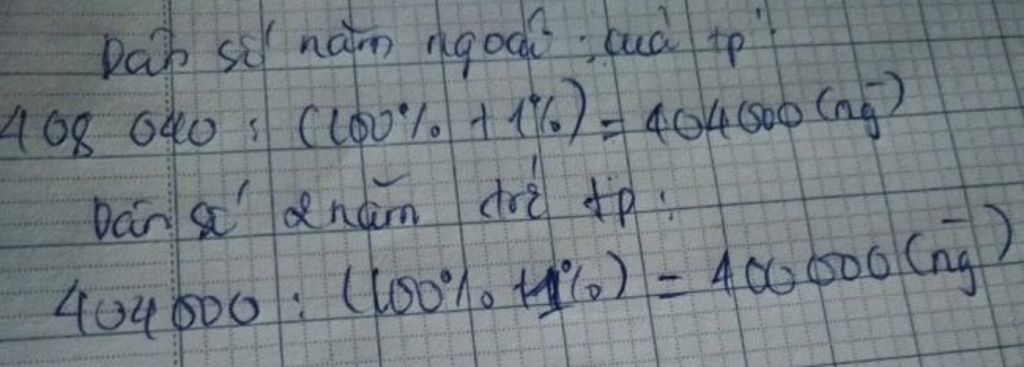 Dân số năm ngoái của tp:
408 040 : (100% + 1%) = 404 000 (ng)
Dân số 2 năm trc tp:
404 000 : (100% + 1%) = 400 000 (ng)